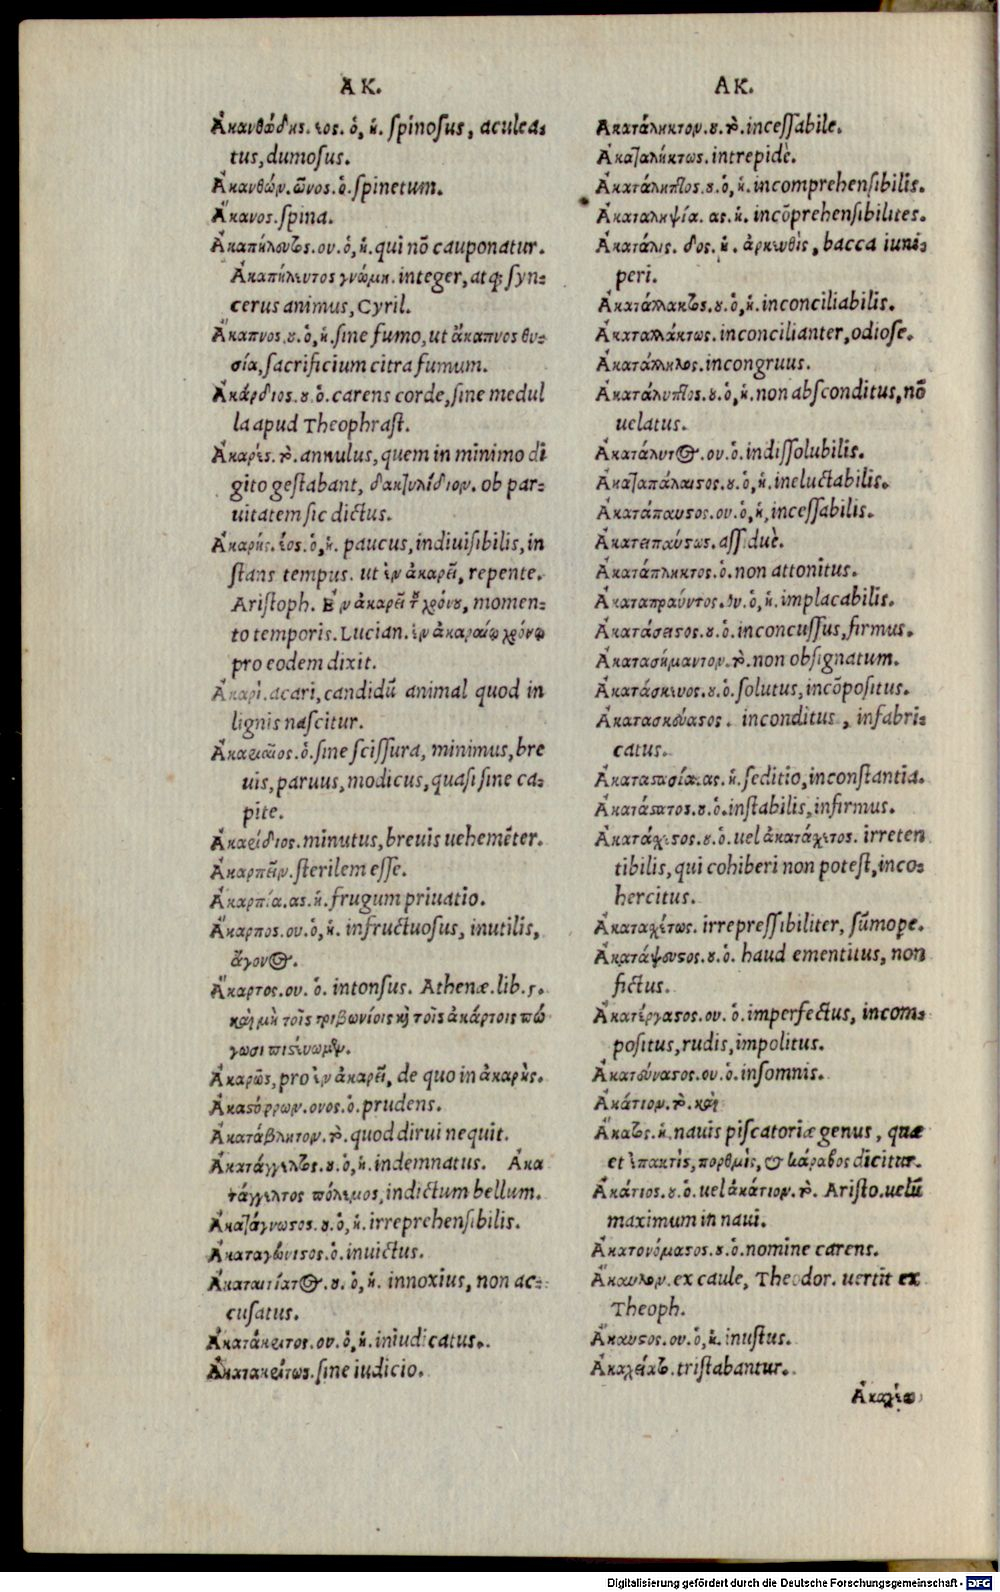 ΑΚ.
Ἀκανθώδης. εος. ὁ, ἡ. ſpinoſus, aculea-
tus, dumoſus.
Ἀκανθών. ῶνος. ὁ. ſpinetum.
Ἄκανος. ſpina.
Ἀκαπήλευτος. ου. ὁ, ἡ. qui nō cauponatur.
Ἀκαπήλευτος γνώμη. integer, atq; ſyn-
cerus animus, Cyril.
Ἄκαπνος. ου. ὁ, ἡ. ſine fumo, ut ἄκαπνος θυ-
σία, ſacrificium citra fumum.
Ἀκάρδιος. ου. ὁ. carens corde, ſine medul
la apud Theophraſt.
Ἀκαρές. τὸ. annulus, quem in minimo di
gito geſtabant, δακτυλίδιον. ob par-
uitatem ſic dictus.
Ἀκαρής. έος. ὁ, ἡ. paucus, indiuiſibilis, in
ſtans tempus. ut ἐν ἀκαρεῖ, repente.
Ariſtoph. Ἐν ἀκαρεῖ τοῦ χρόνου, momen-
to temporis. Lucian. ἐν ἀκαραίῳ χρόνῳ
pro eodem dixit.
Ἀκαρὶ. acari, candidū animal quod in
lignis naſcitur.
Ἀκαριαῖος. ὁ. ſine ſciſſura, minimus, bre
uis, paruus, modicus, quaſi ſine ca-
pite.
Ἀκαρίδιος. minutus, breuis uehemēter.
Ἀκαρπεῖν. ſterilem eſſe.
Ἀκαρπία. ας. ἡ. frugum priuatio.
Ἄκαρπος. ου. ὁ, ἡ. infructuoſus, inutilis,
ἄγονος.
Ἄκαρτος. ου. ὁ. intonſus. Athenæ. lib. ς.
καὶ μὴ τοῖς τριβωνίοις καὶ τοῖς ἀκάρτοις πώ
γωσι πιστεύωμεν.
Ἀκαρῶς, pro ἐν ἀκαρεῖ, de quo in ἀκαρὴς.
Ἀκαστόφρων. ονος. ὁ. prudens.
Ἀκατάβλητον. τὸ. quod dirui nequit.
Ἀκατάγγελτος. ου. ὁ, ἡ. indemnatus. Ἀκα
τάγγελτος πόλεμος, indictum bellum.
Ἀκατάγνωστος. ου. ὁ, ἡ. irreprehenſibilis.
Ἀκαταγώνιστος. ὁ. inuictus.
Ἀκαταιτίατος. ου. ὁ, ἡ. innoxius, non ac-
cuſatus.
Ἀκατάκριτος. ου. ὁ, ἡ. iniudicatus.
Ἀκατακρίτως. ſine iudicio.
ΑΚ.
Ἀκατάληκτον. ου. τὸ. inceſſabile.
Ἀκαταλήκτως. intrepidè.
Ἀκατάληπτος. ου. ὁ, ἡ. incomprehenſibilis.
Ἀκαταληψία. ας. ἡ. incōprehenſibilites.
Ἀκατάλις. δος. ἡ. ἀρκευθὶς, bacca iuni-
peri.
Ἀκατάλλακτος. ου. ὁ, ἡ. inconciliabilis.
Ἀκαταλλάκτως. inconcilianter, odioſe.
Ἀκατάλληλος. incongruus.
Ἀκατάλυπτος. ου. ὁ, ἡ. non abſconditus, nō
uelatus.
Ἀκατάλυτος. ου. ὁ. indiſſolubilis.
Ἀκαταπάλαιστος. ου. ὁ, ἡ. ineluctabilis.
Ἀκατάπαυστος. ου. ὁ, ἡ, inceſſabilis.
Ἀκαταπαύστως. aſſiduè.
Ἀκατάπληκτος. ὁ. non attonitus.
Ἀκαταπραύντος. ου. ὁ, ἡ. implacabilis.
Ἀκατάσειστος. ου. ὁ. inconcuſſus, firmus.
Ἀκατασήμαντον. τὸ. non obſignatum.
Ἀκατάσκευος. ου. ὁ. ſolutus, incōpoſitus.
Ἀκατασκεύαστος. inconditus, infabri-
catus.
Ἀκαταστασία. ας. ἡ. ſeditio, inconſtantia.
Ἀκατάστατος. ου. ὁ. inſtabilis, infirmus.
Ἀκατάχιστος. ου. ὁ. uel ἀκατάχετος. irreten
tibilis, qui cohiberi non poteſt, inco-
hercitus.
Ἀκαταχέτως. irrepreſſibiliter, ſūmope.
Ἀκατάψευστος. ου. ὁ. haud ementitus, non
fictus.
Ἀκατέργαστος. ου. ὁ. imperfectus, incom-
poſitus, rudis, impolitus.
Ἀκατεύναστος. ου. ὁ. inſomnis.
Ἀκάτιον. τὸ. καὶ
Ἄκατος. ἡ. nauis piſcatoriæ genus, quæ
et ἐπακτὶς, πορθμὶς, & κάραβος dicitur.
Ἀκάτιος. ου. ὁ. uel ἀκάτιον. τὸ. Ariſto. uelū
maximum in naui.
Ἀκατονόμαστος. ου. ὁ. nomine carens.
Ἄκαυλον. ex caule, Theodor. uertit ex
Theoph.
Ἄκαυστος. ου. ὁ, ἡ. inuſtus.
Ἀκαχείατο. triſtabantur.
Digitalisierung gefördert durch die Deutsche Forschungsgemeinschaft - DFG